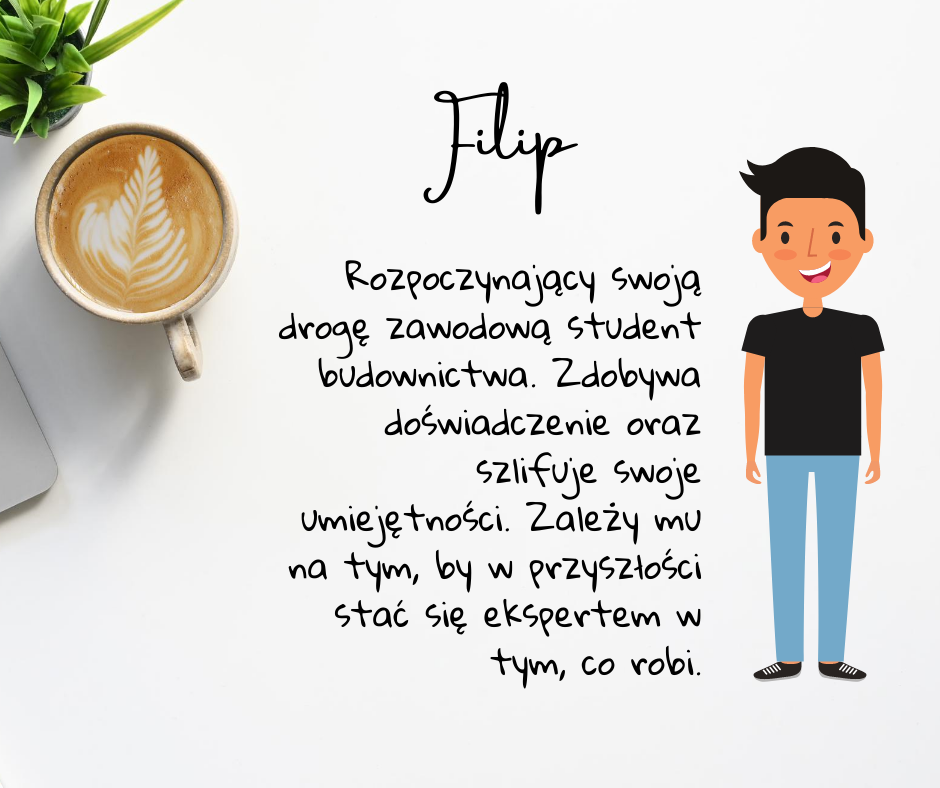 Filip
Rozpoczynający swoją
drogę zawodową student
budownictwa. Zdobywa
doświadczenie oraz
szlifuje swoje
umiejętności. Zależy mu
na tym, by w przyszłości
stać się ekspertem w
tym, co robi.